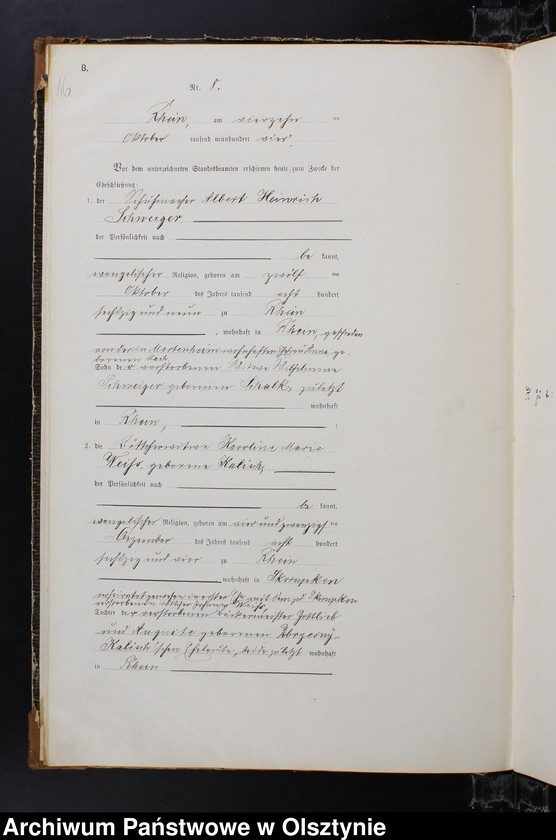 B.
116
Nr. 8.
Rhein, am vierzehn ten
Oktober tausend neunhundert vier.
Vor dem unterzeichneten Standesbeamten erschienen heute zum Zwecke der
Eheschließung:
1. der Schuhmacher Albert Heinrich
Schweiger
der Persönlichkeit nach
be kannt,
evangelischer Religion, geboren am zwölf ten
Oktober des Jahres tausend acht hundert
sechszig und neun zu Rhein
, wohnhaft in Rhein, geschieden
von der in wohnhaften ge-
borenen
Sohn der verstorbenen Witwe Wilhelmine
Schweiger geborenen Schalk, zuletzt
wohnhaft
in Rhein,
2. die Böttcherwitwe Karoline Marie
Weiß, geborene Kalisch,
der Persönlichkeit nach
be kannt,
evangelischer Religion, geboren am vier und zwanzigs ten
Dezember des Jahres tausend acht hundert
sechszig und vier zu Rhein
wohnhaft in Skorupken
verheiratet gewesen in erster Ehe mit dem zu Skorupken
verstorbenen Böttcher Weiß,
Tochter der verstorbenen Gottlieb
und Auguste geborenen
Kalisch'schen Eheleute, beide zuletzt wohnhaft
in Rhein
Archiwum Państwowe w Olsztynie